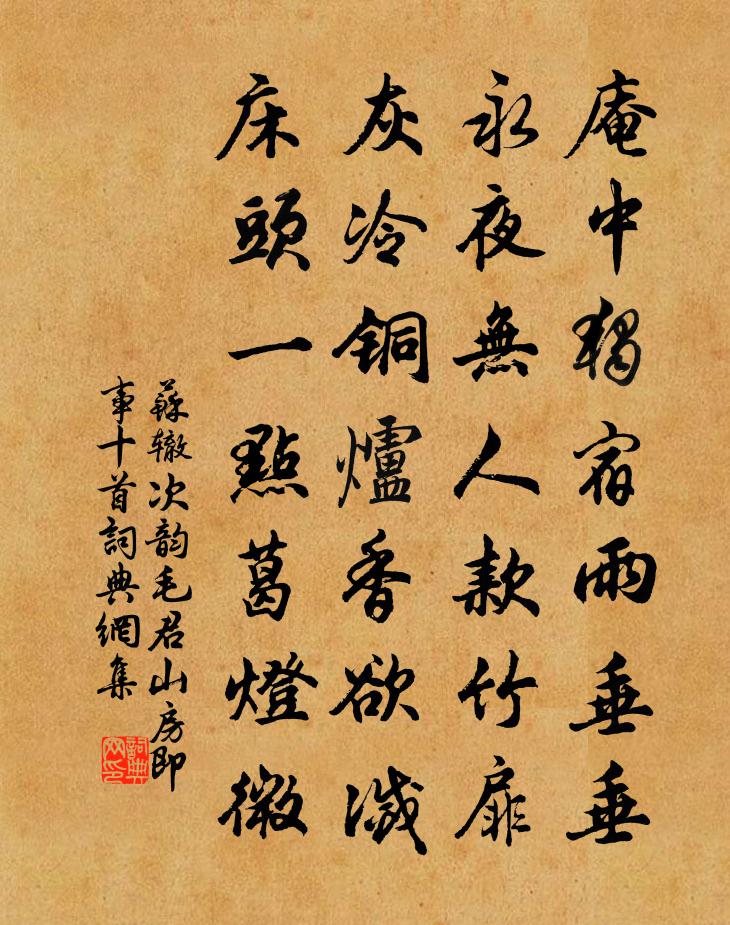 庵中獨宿雨垂垂
永夜無人款竹扉
灰冷銅爐香欲滅
床頭一點葛燈微
蘇辙次韵毛君山房即
事十首詞典網集
詞典
网印